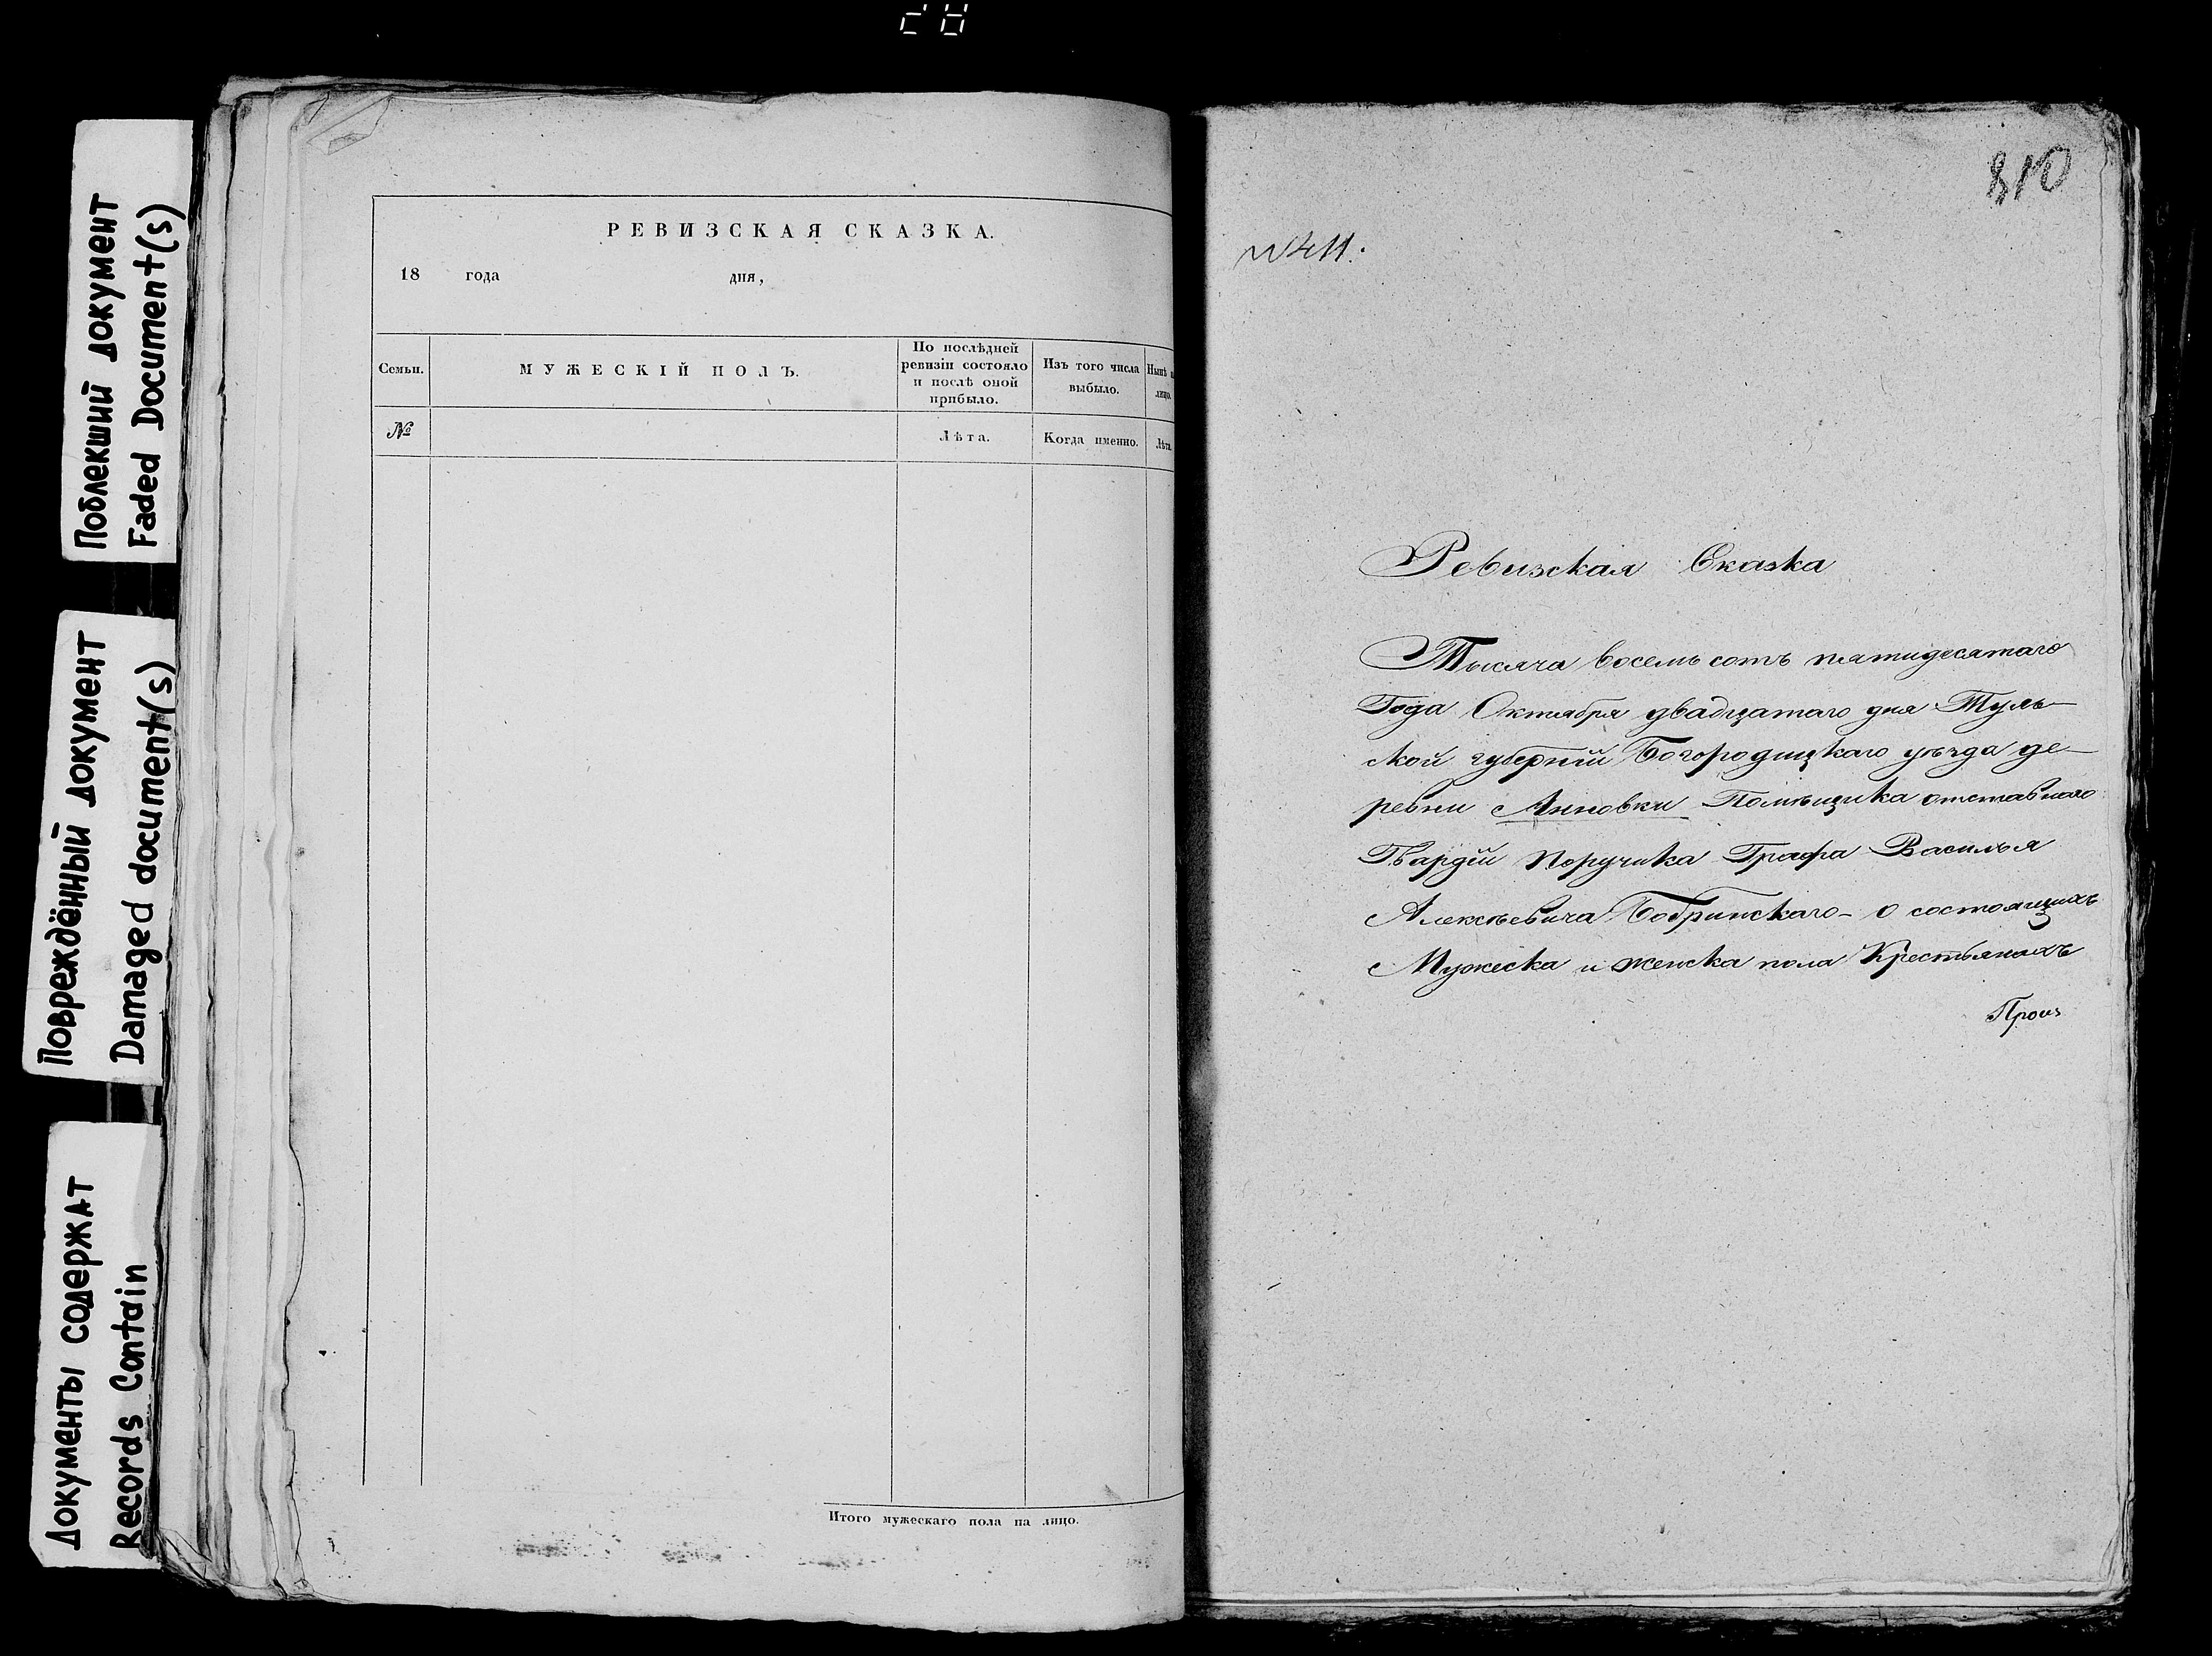 Поблекший документ
Faded Document(s)
Повреждённый документ
Damaged document(s)
Документы содержат
Records Contain
РЕВИЗСКАЯ СКАЗКА.
18 года дня,
Семьи.
МУЖЕСКІЙ ПОЛЪ.
По послѣдней
ревизіи состояло
и послѣ оной
прибыло.
Изъ того числа
выбыло.
Нынѣ
лицо.
№
Лѣта.
Когда именно.
Лѣта.
Итого мужескаго пола на лицо.
810
№411.
Ревизская Сказка
Тысяча восемь сотъ пятидесятаго
Года Октября двадцатаго дня Туль-
ской губерніи Богородицкаго уѣзда де-
ревни Анновки Помѣщика отставнаго
Гвардіи Поручика Графа Василья
Алексѣевича Бобринскаго - о состоящихъ
Мужеска и женска пола Крестьянахъ